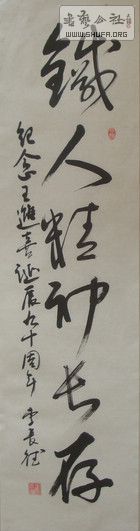 書藝公社
WWW.SHUFA.ORG
鐵人精神长存
紀念王進喜诞辰九十周年 李長征